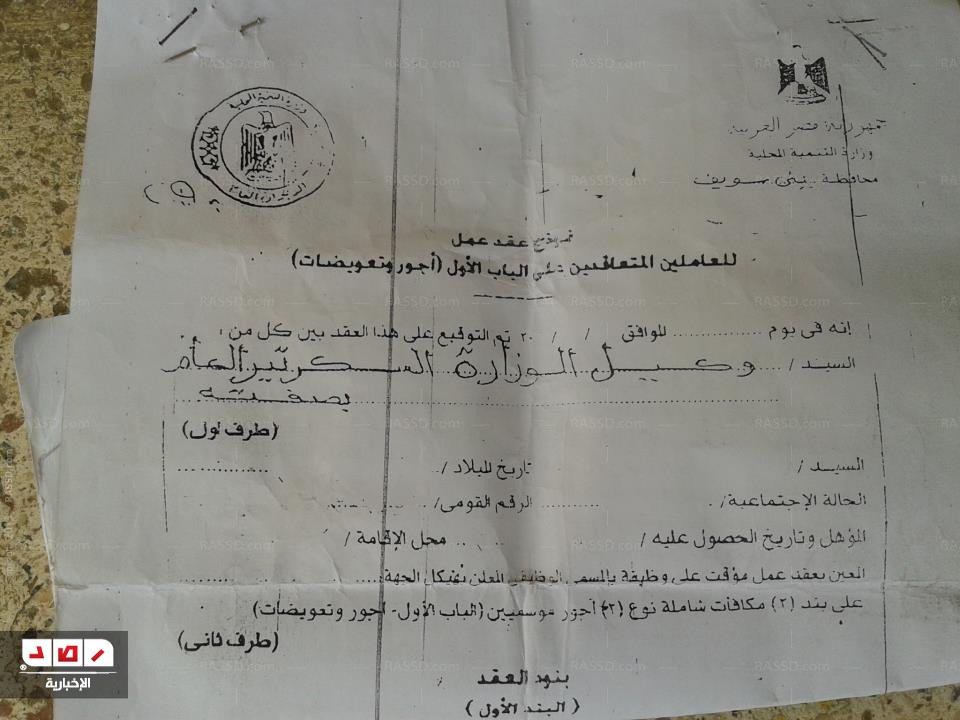 جمهورية مصر العربية
وزارة التنمية المحلية
محافظة بنى سويف
وزارة التنمية المحلية
نموذج عقد عمل
للعاملين المتعاقدين على الباب الأول (أجور وتعويضات)
إنه فى يوم .................. الموافق / / ٢٠ تم التوقيع على هذا العقد بين كل من :
السيد / وكيل الوزارة السكرتير العام
بصفته
(طرف أول)
السيد / تاريخ الميلاد /
الحالة الإجتماعية / الرقم القومى /
المؤهل وتاريخ الحصول عليه / محل الإقامة /
المعين بعقد عمل مؤقت على وظيفة بالمسمى الوظيفى المعلن بهيكل الجهة
على بند (٢) مكافآت شاملة نوع (٣) أجور موسميين (الباب الأول - أجور وتعويضات)
(طرف ثانى)
بنود العقد
(البند الأول)
رصد
الإخبارية
RASSD.com